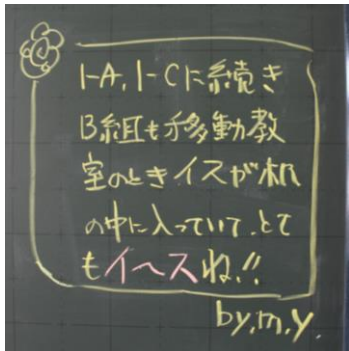 1-A, 1-Cに続き
B組も移動教
室のときイスが机
の中に入っていて、とて
もイ〜スね!!
by, m, y.